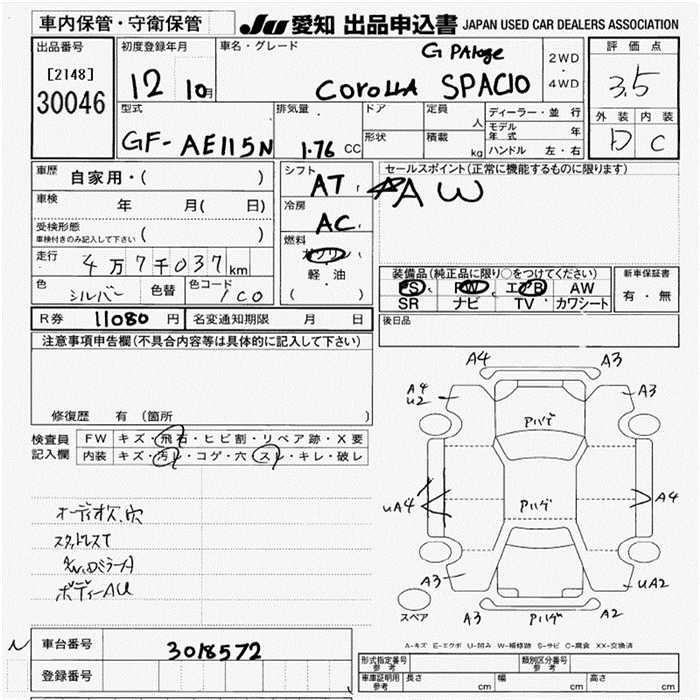 車内保管・守衛保管 JU 愛知 出品申込書 JAPAN USED CAR DEALERS ASSOCIATION
出品番号
[2148]
30046
初度登録年月
12 10月
車名・グレード
G PAkage
COROLLA SPACIO
2WD
・
4WD
評価点
3.5
外装 内装
D C
型式
GF- AE115N
排気量
1.76 CC
ドア
形状
定員 人
積載 kg
ディーラー・並行
モデル年式 年
ハンドル 左・右
車歴 自家用・( )
車検 年 月( 日)
受検形態
車検付きのみ記入して下さい ( )
走行 4万7千037km
色 シルバー 色替 色コード 1C0
シフト AT
冷房 AC
燃料
ガソリン
軽・油
( )
セールスポイント(正常に機能するものに限ります)
AW
装備品(純正品に限り○をつけてください)
PS PW エアB AW
SR ナビ TV カワシート
新車保証書
有・無
R券 11080円 名変通知期限 月 日
後日品
注意事項申告欄(不具合内容等は具体的に記入して下さい)
修復歴 有 (箇所 )
検査員記入欄
FW キズ・飛石・ヒビ割・リペア跡・X要
内装 キズ・汚レ・コゲ・穴・スレ・キレ・破レ
スタッドレスT
ボディーAU
A4 A3
A4
U2
A3
アハゲ
アハゲ
UA4 A4
A3 UA2
スペア
A3 アハゲ A2
A-キズ E-エクボ U-凹み W-補修跡 S-サビ C-腐食 XX-交換済
車台番号 3018572
登録番号
型式指定番号 参考
類別区分番号 参考
車庫証明用 参考 長さ cm 幅 cm 高さ cm